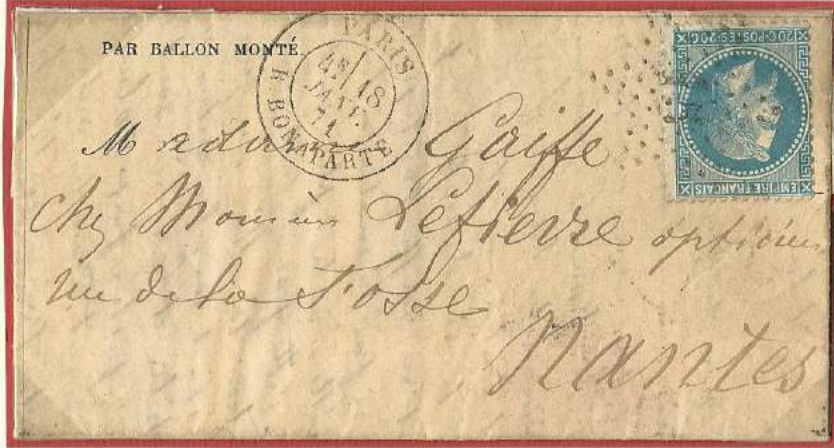 PAR BALLON MONTÉ.
PARIS
R. BONAPARTE
4E
18
JANV.
71
20C-POSTES-20C
EMPIRE FRANCAIS
Madame Gaiffe
chez Monsieur Lefievre opticien
rue de la Fosse
Nantes